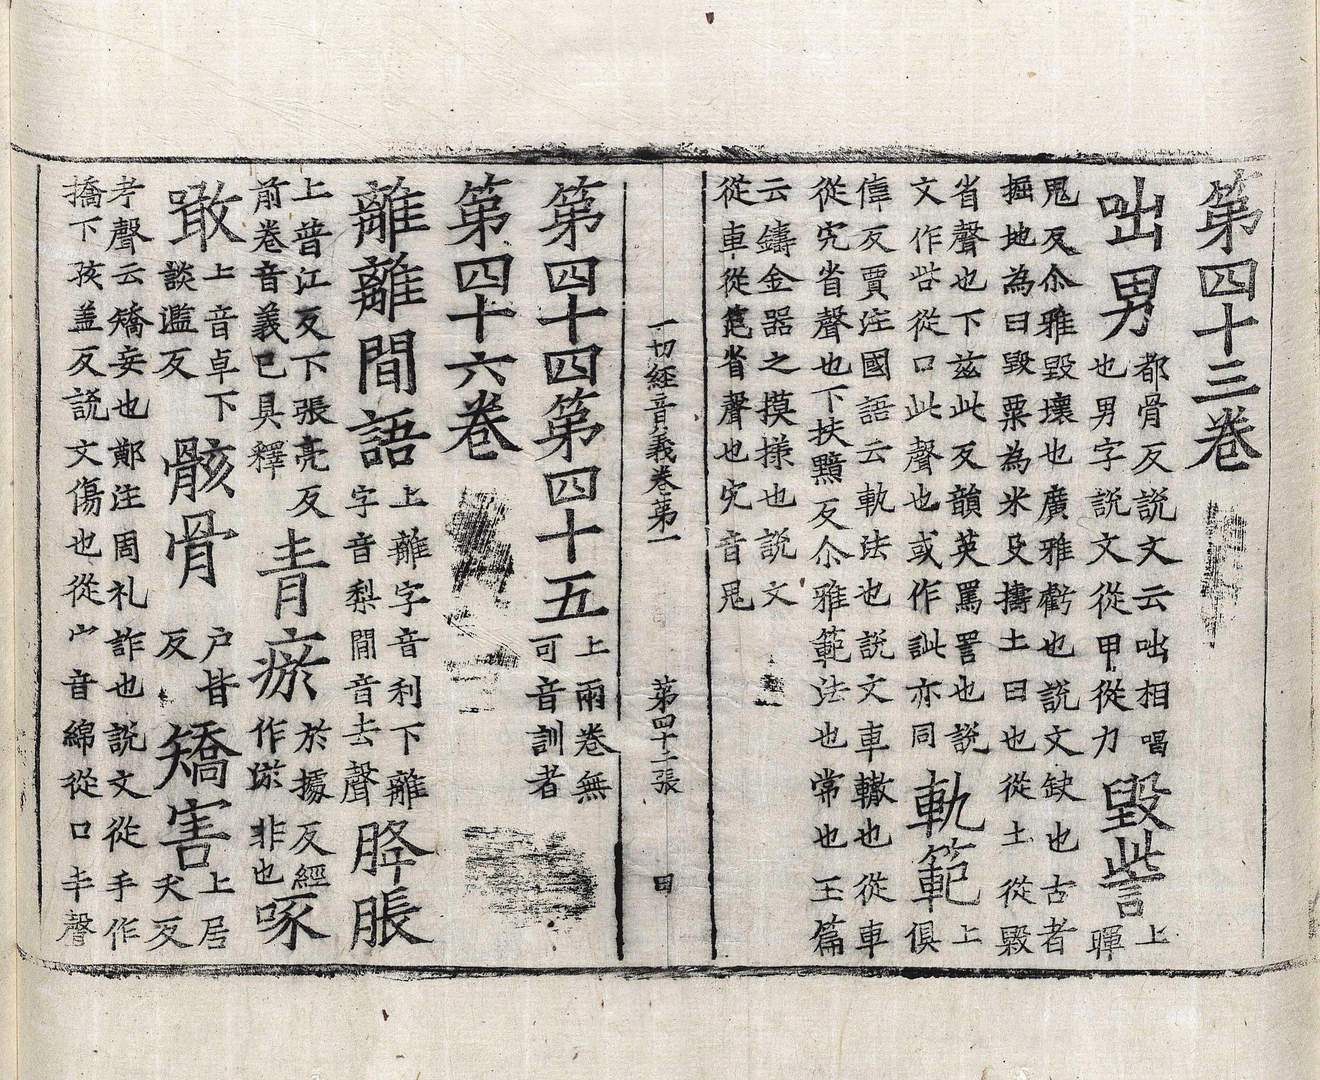 第四十三卷
咄男
都骨反説文云咄相唱
也男字説文從甲從力
毀呰
上
暉
鬼反尒雅毀壞也廣雅虧也説文缺也古者
掘地為臼毀粟為米又擣土曰也從土從毇
省聲也下茲此反韻英罵詈也説
文作呰從口此聲也或作訿亦同
軌範
上
俱
偉反賈注國語云軌法也説文車轍也從車
從宄省聲也下扶黯反尒雅範法也常也玉篇
云鑄金器之摸㨾也説文
從車從笵省聲也宄音鬼
一切經音義卷第一 第四十二張 曰
第四十四第四十五
上兩卷無
可音訓者
第四十六卷
離離間語
上離字音利下離
字音梨間音去聲
胮脹
上普江反下張亮反
前卷音義已具釋
青瘀
於據反經
作淤非也
啄
噉
上音卓下
談濫反
骸骨
户皆
反
矯害
上居
夭反
考聲云矯妄也鄭注周礼詐也説文從手作
撟下孩盖反説文傷也從宀音綿從口丯聲